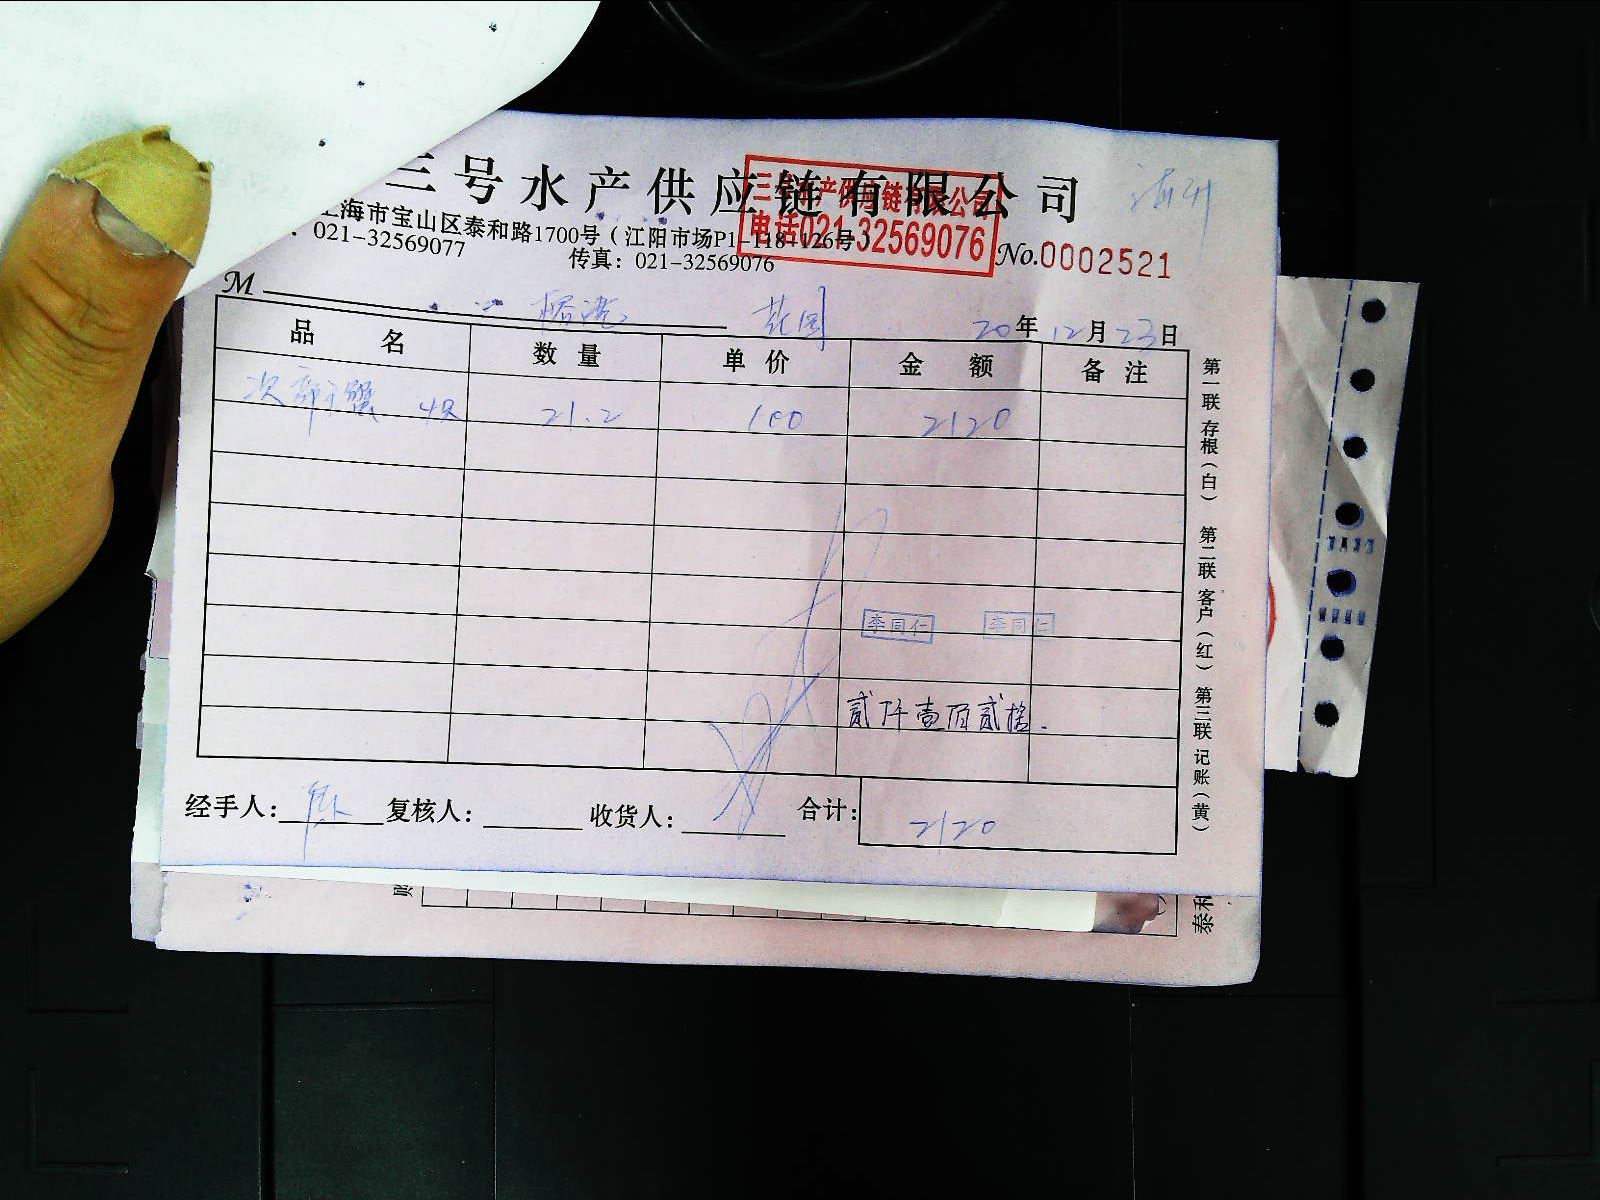 三号水产供应链有限公司
三号水产供应链有限公司
电话021-32569076
上海市宝山区泰和路1700号（江阳市场P1-118-126号
021-32569077
传真：021-32569076
No.0002521
M 榕港 花园
20年12月23日
品名 数量 单价 金额 备注
次帝王蟹 4只 21.2 100 2120
李同仁 李同仁
贰仟壹佰贰拾.
经手人： 复核人： 收货人： 合计： 2120
第一联 存根（白） 第二联 客户（红） 第三联 记账（黄）
泰和